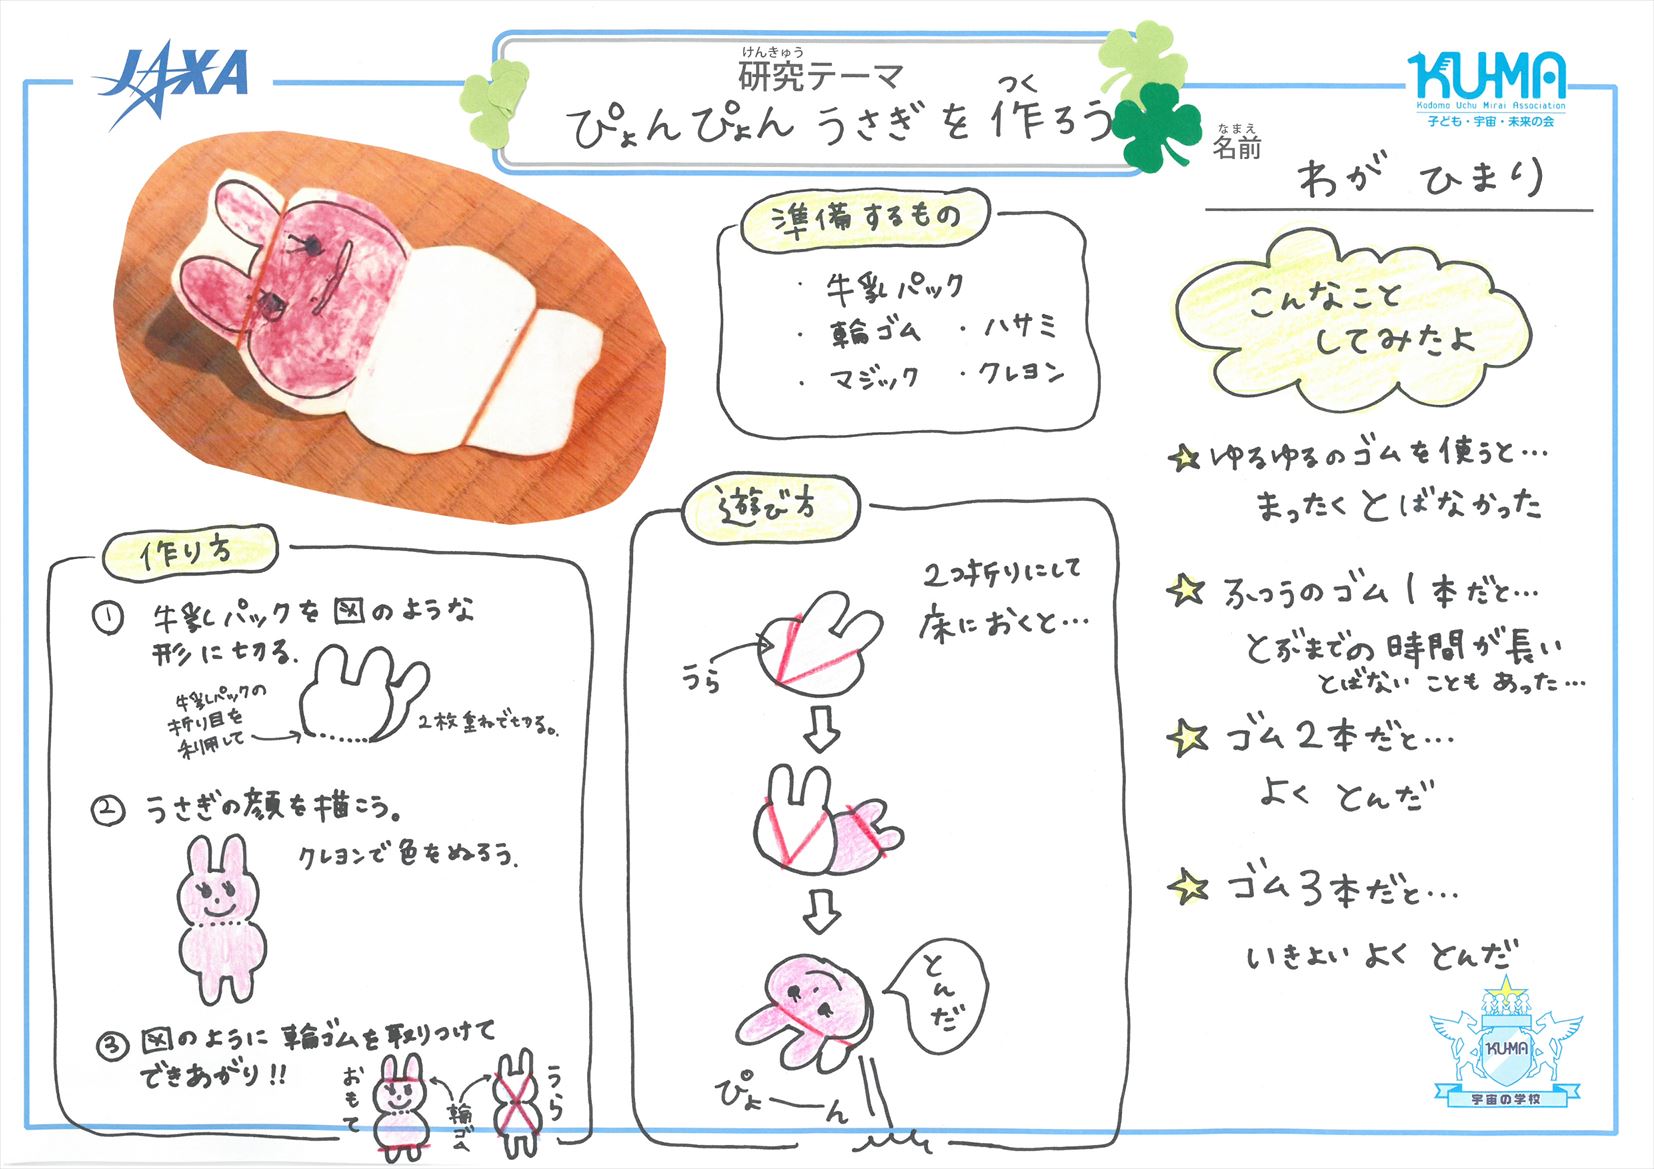 JAXA
けんきゅう
研究テーマ
つく
ぴょんぴょん うさぎを作ろう
KU-MA
Kodomo Uchu Mirai Association
子ども・宇宙・未来の会
なまえ
名前
わが ひまり
準備するもの
・牛乳パック
・輪ゴム ・ハサミ
・マジック ・クレヨン
作り方
① 牛乳パックを図のような
形に切る.
牛乳パックの
折り目を
利用して
2枚重ねで切る。
② うさぎの顔を描こう。
クレヨンで色をぬろう.
③ 図のように輪ゴムを取りつけて
できあがり!!
おもて
輪ゴム
うら
遊び方
2つ折りにして
床におくと…
うら
とんだ
ぴょーん
こんなこと
してみたよ
☆ゆるゆるのゴムを使うと…
まったくとばなかった
☆ふつうのゴム1本だと…
とぶまでの時間が長い
とばないこともあった…
☆ゴム2本だと…
よくとんだ
☆ゴム3本だと…
いきよいよくとんだ
KU-MA
宇宙の学校